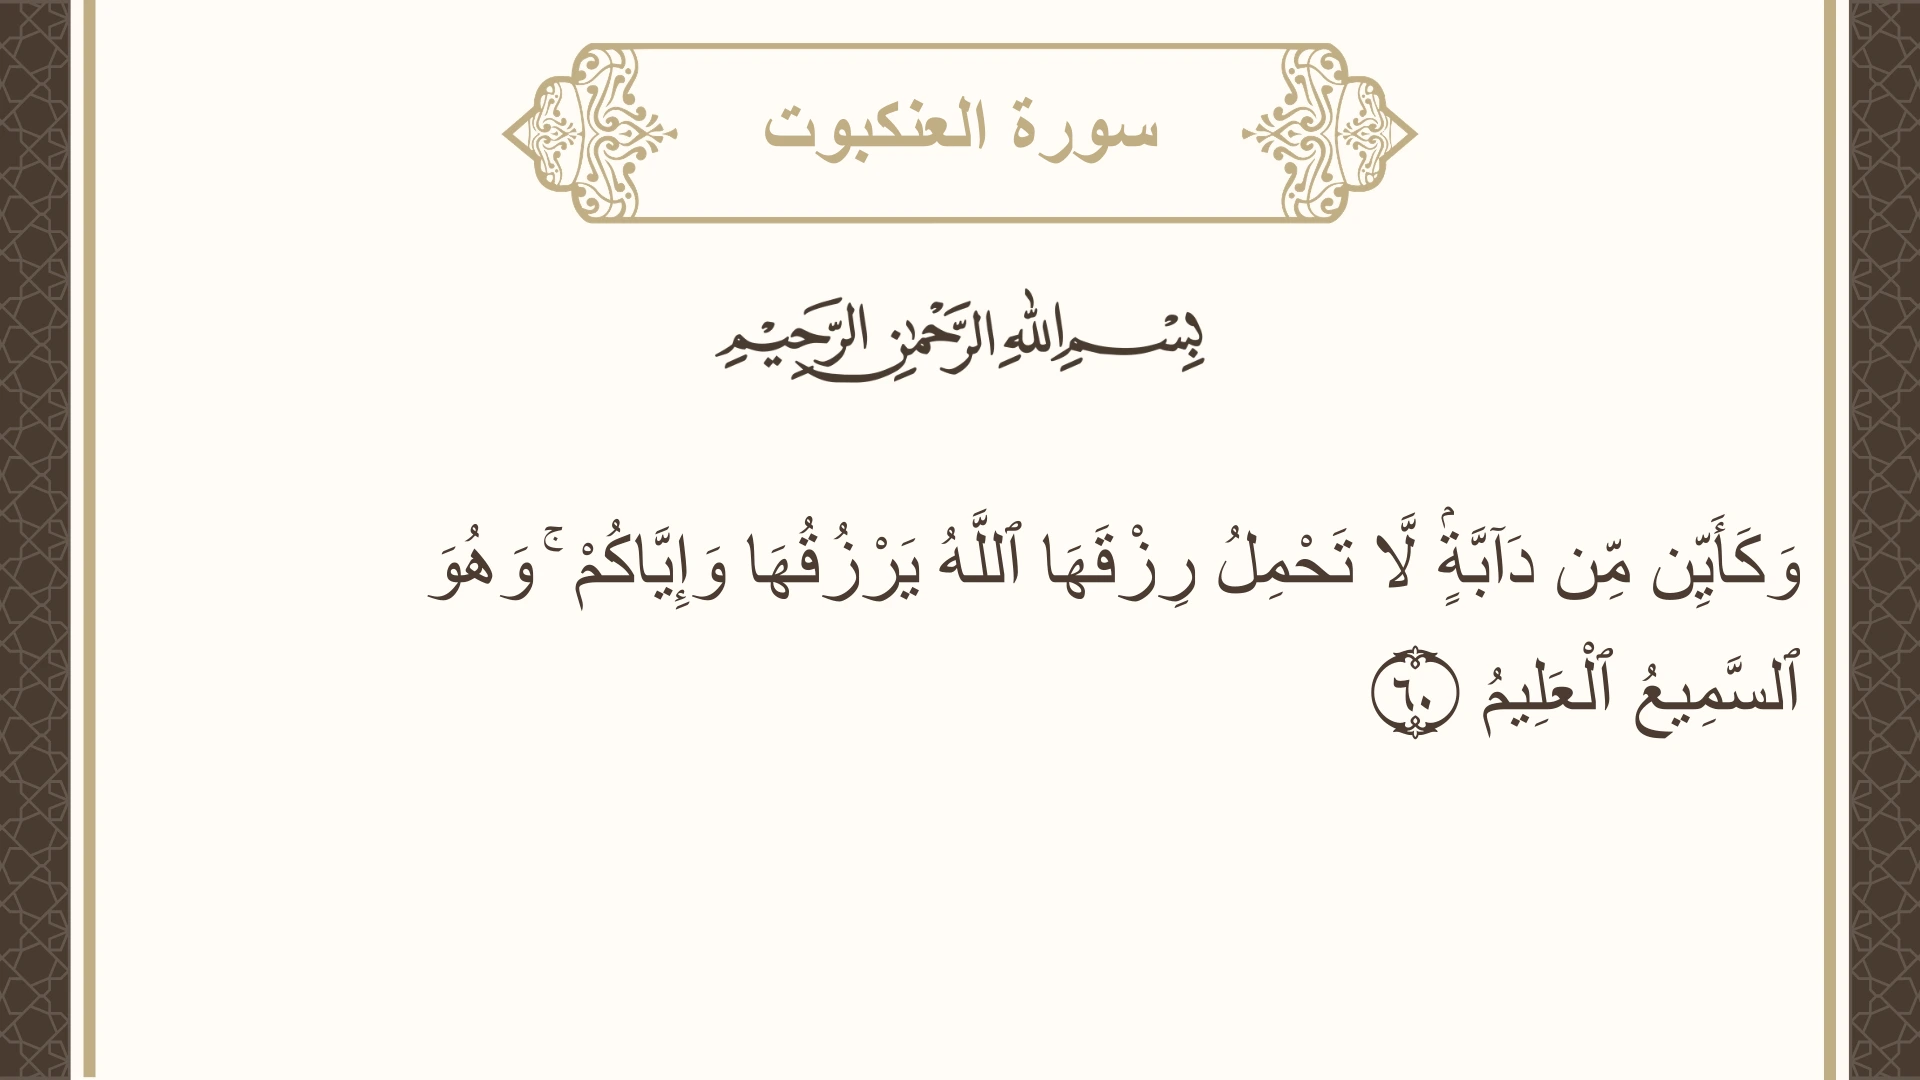 سورة العنكبوت
بِسْمِ اللهِ الرَّحْمٰنِ الرَّحِيْمِ
وَكَأَيِّن مِّن دَآبَّةٍۢ لَّا تَحْمِلُ رِزْقَهَا ٱللَّهُ يَرْزُقُهَا وَإِيَّاكُمْ ۚ وَهُوَ
ٱلسَّمِيعُ ٱلْعَلِيمُ ٦٠